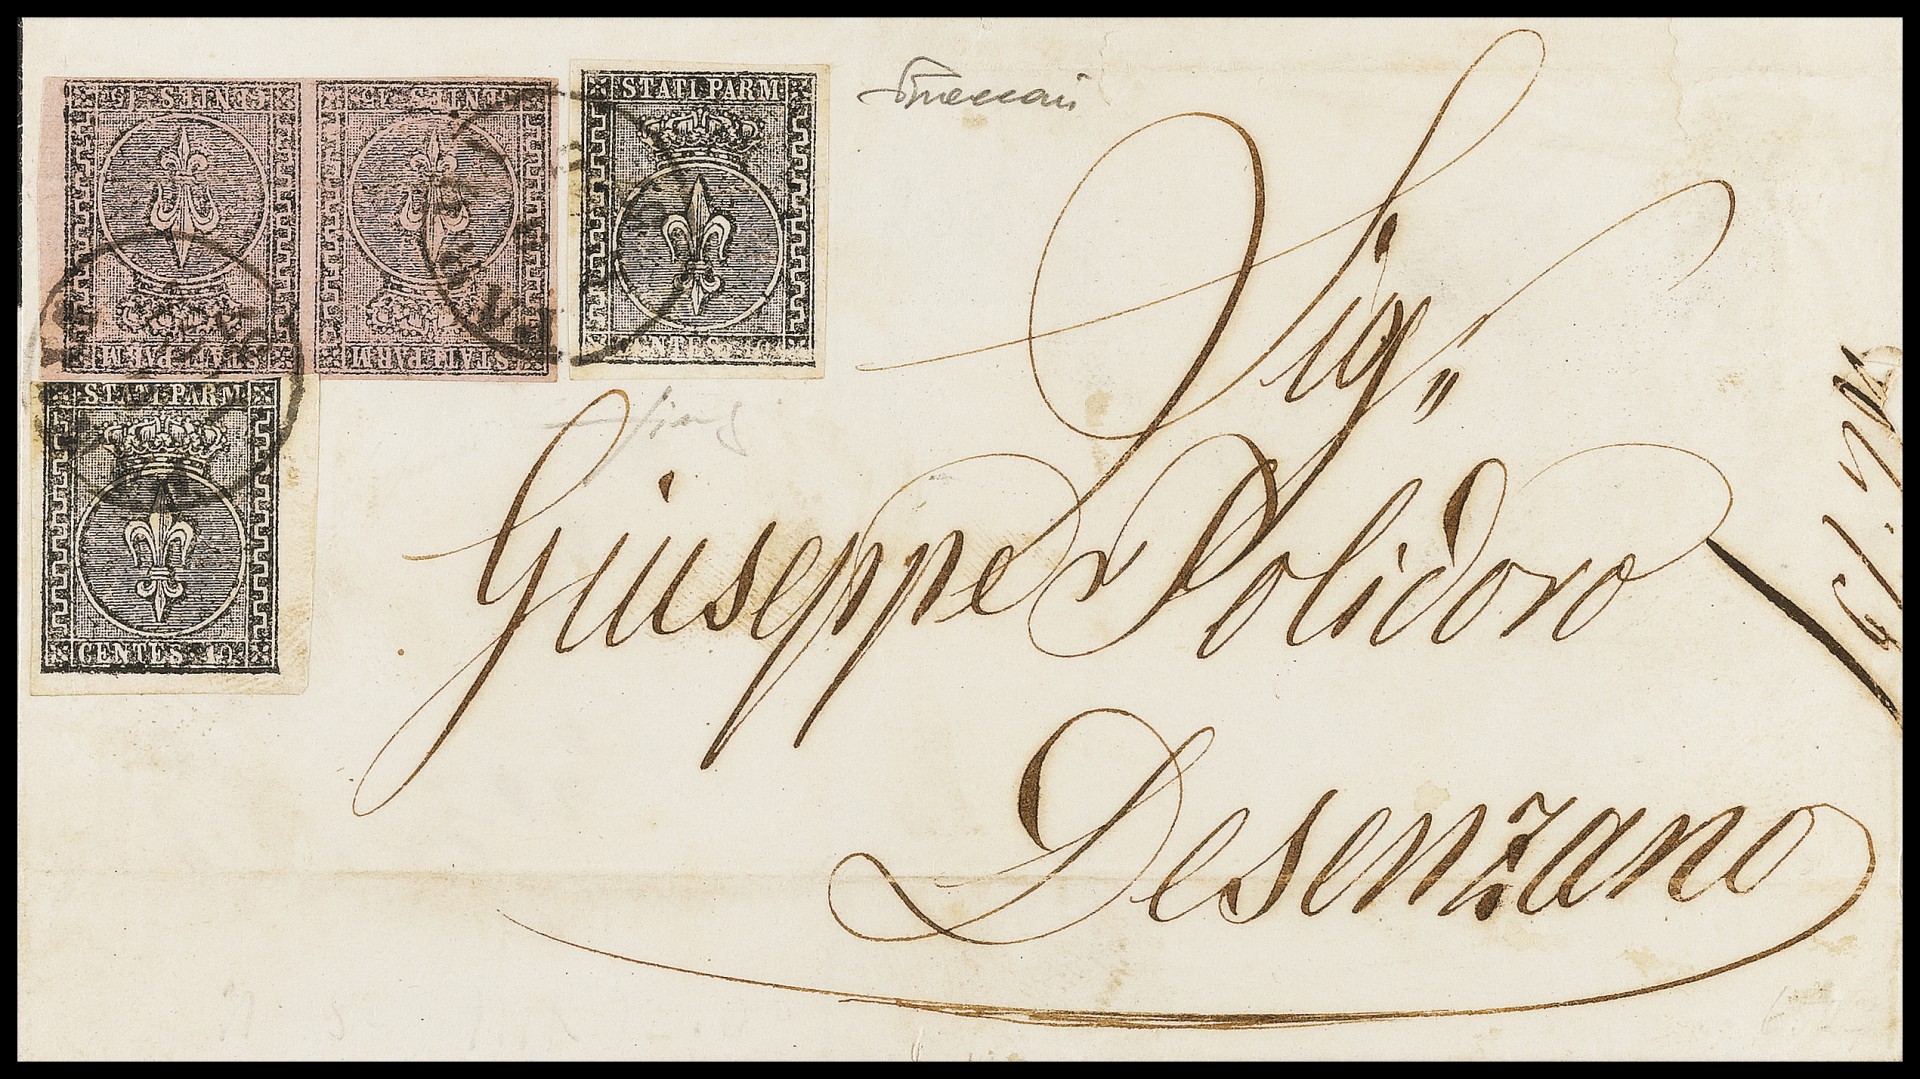 CENTES 15
CENTES 15
STATI PARM
STATI PARM
STATI PARM
CENTES 10
STATI PARM
CENTES 10
Sig,,
Giuseppe Polidoro
Desenzano